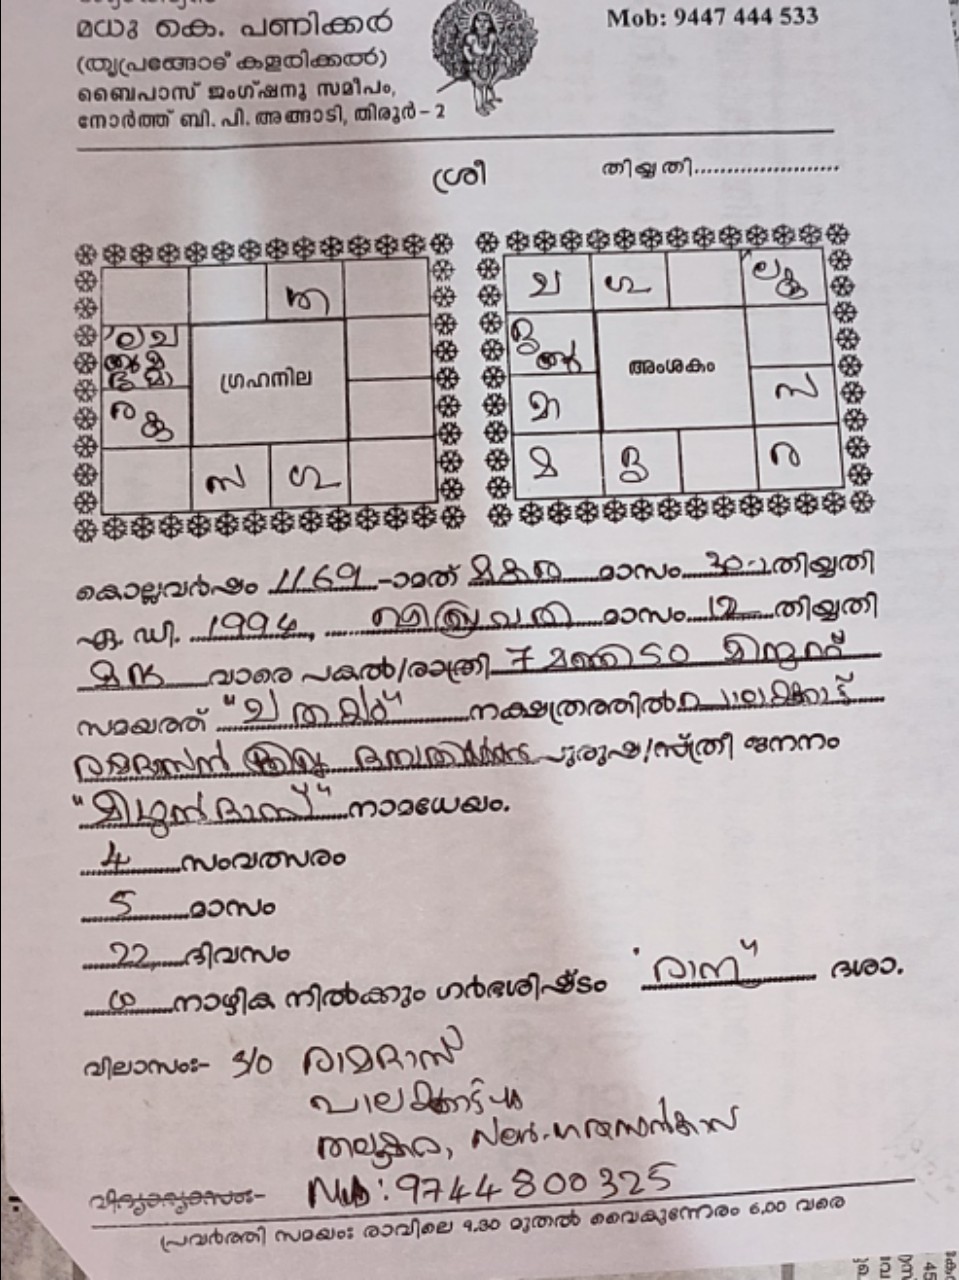 മധു കെ. പണിക്കർ
(തൃപ്രങ്ങോട് കളരിക്കൽ)
ബൈപാസ് ജംഗ്ഷനു സമീപം,
നോർത്ത് ബി. പി. അങ്ങാടി, തിരൂർ - 2
Mob: 9447 444 533
ശ്രീ
തിയ്യതി......................
ഗ്രഹനില
അംശകം
കൊല്ലവർഷം 1169 -ാമത് മകരം മാസം 30 തിയ്യതി
ഏ.ഡി. 1994 ഫെബ്രുവരി മാസം 12 തിയ്യതി
ശനി വാരെ പകൽ/രാത്രി 7 മണി 50 മിനുട്ട്
സമയത്ത് "ചതയം" നക്ഷത്രത്തിൽ പാലക്കാട്ട്
രാമദാസൻ പുരുഷ/സ്ത്രീ ജനനം
"മിഥുൻ ദാസ്" നാമധേയം.
4 സംവത്സരം
5 മാസം
22 ദിവസം
നാഴിക നിൽക്കും ഗർഭശിഷ്ടം "രാഹു" ദശാ.
വിലാസം:- S/O രാമദാസ്
പാലക്കാട്ട്
തലൂക്കര,
Mob: 9744 800 325
പ്രവർത്തി സമയം: രാവിലെ 9.30 മുതൽ വൈകുന്നേരം 6.00 വരെ